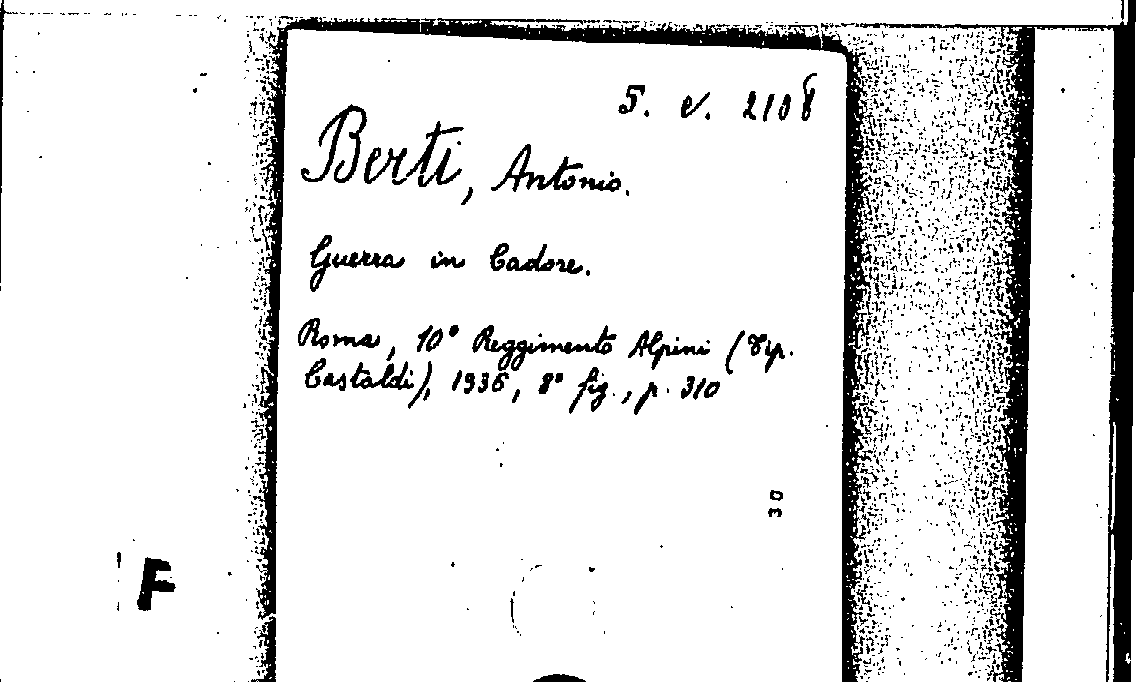 5. v. 2108
Berti, Antonio.
Guerra in Cadore.
Roma, 10° Reggimento Alpini (Tip.
Castaldi), 1936, 8° fig., p. 310
30
F